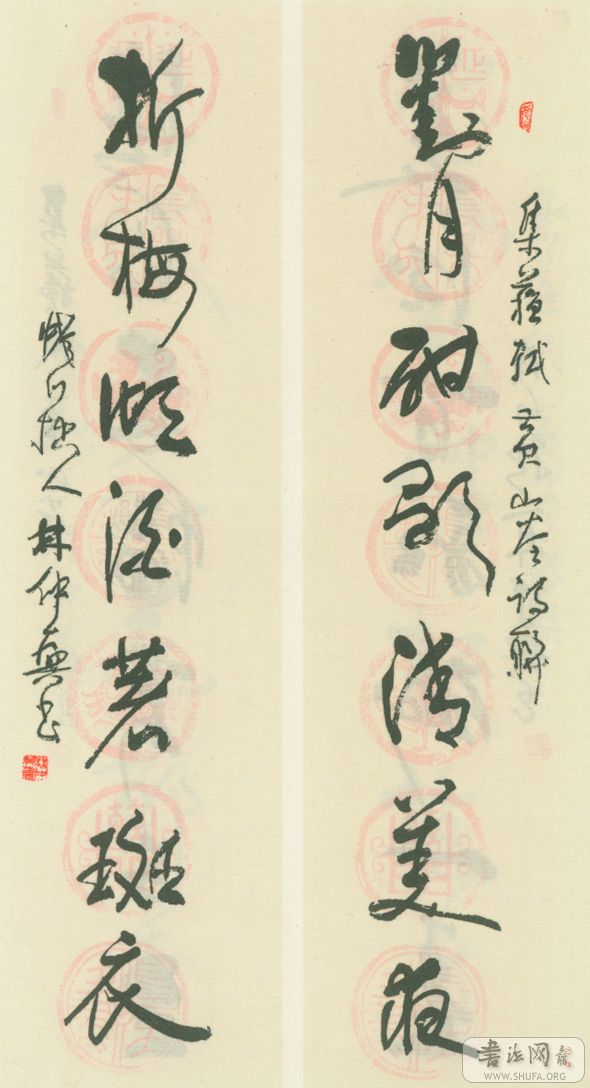 集蘇軾黃山谷詩聯
對月酣歌清美夜
折梅傾酒著斑衣
拙人林仲興書
書法网
WWW.SHUFA.ORG